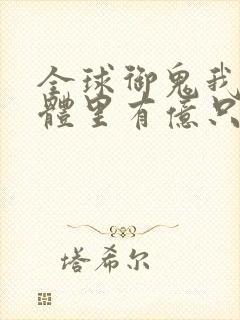 全球御鬼我
體里有億只
塔希尔